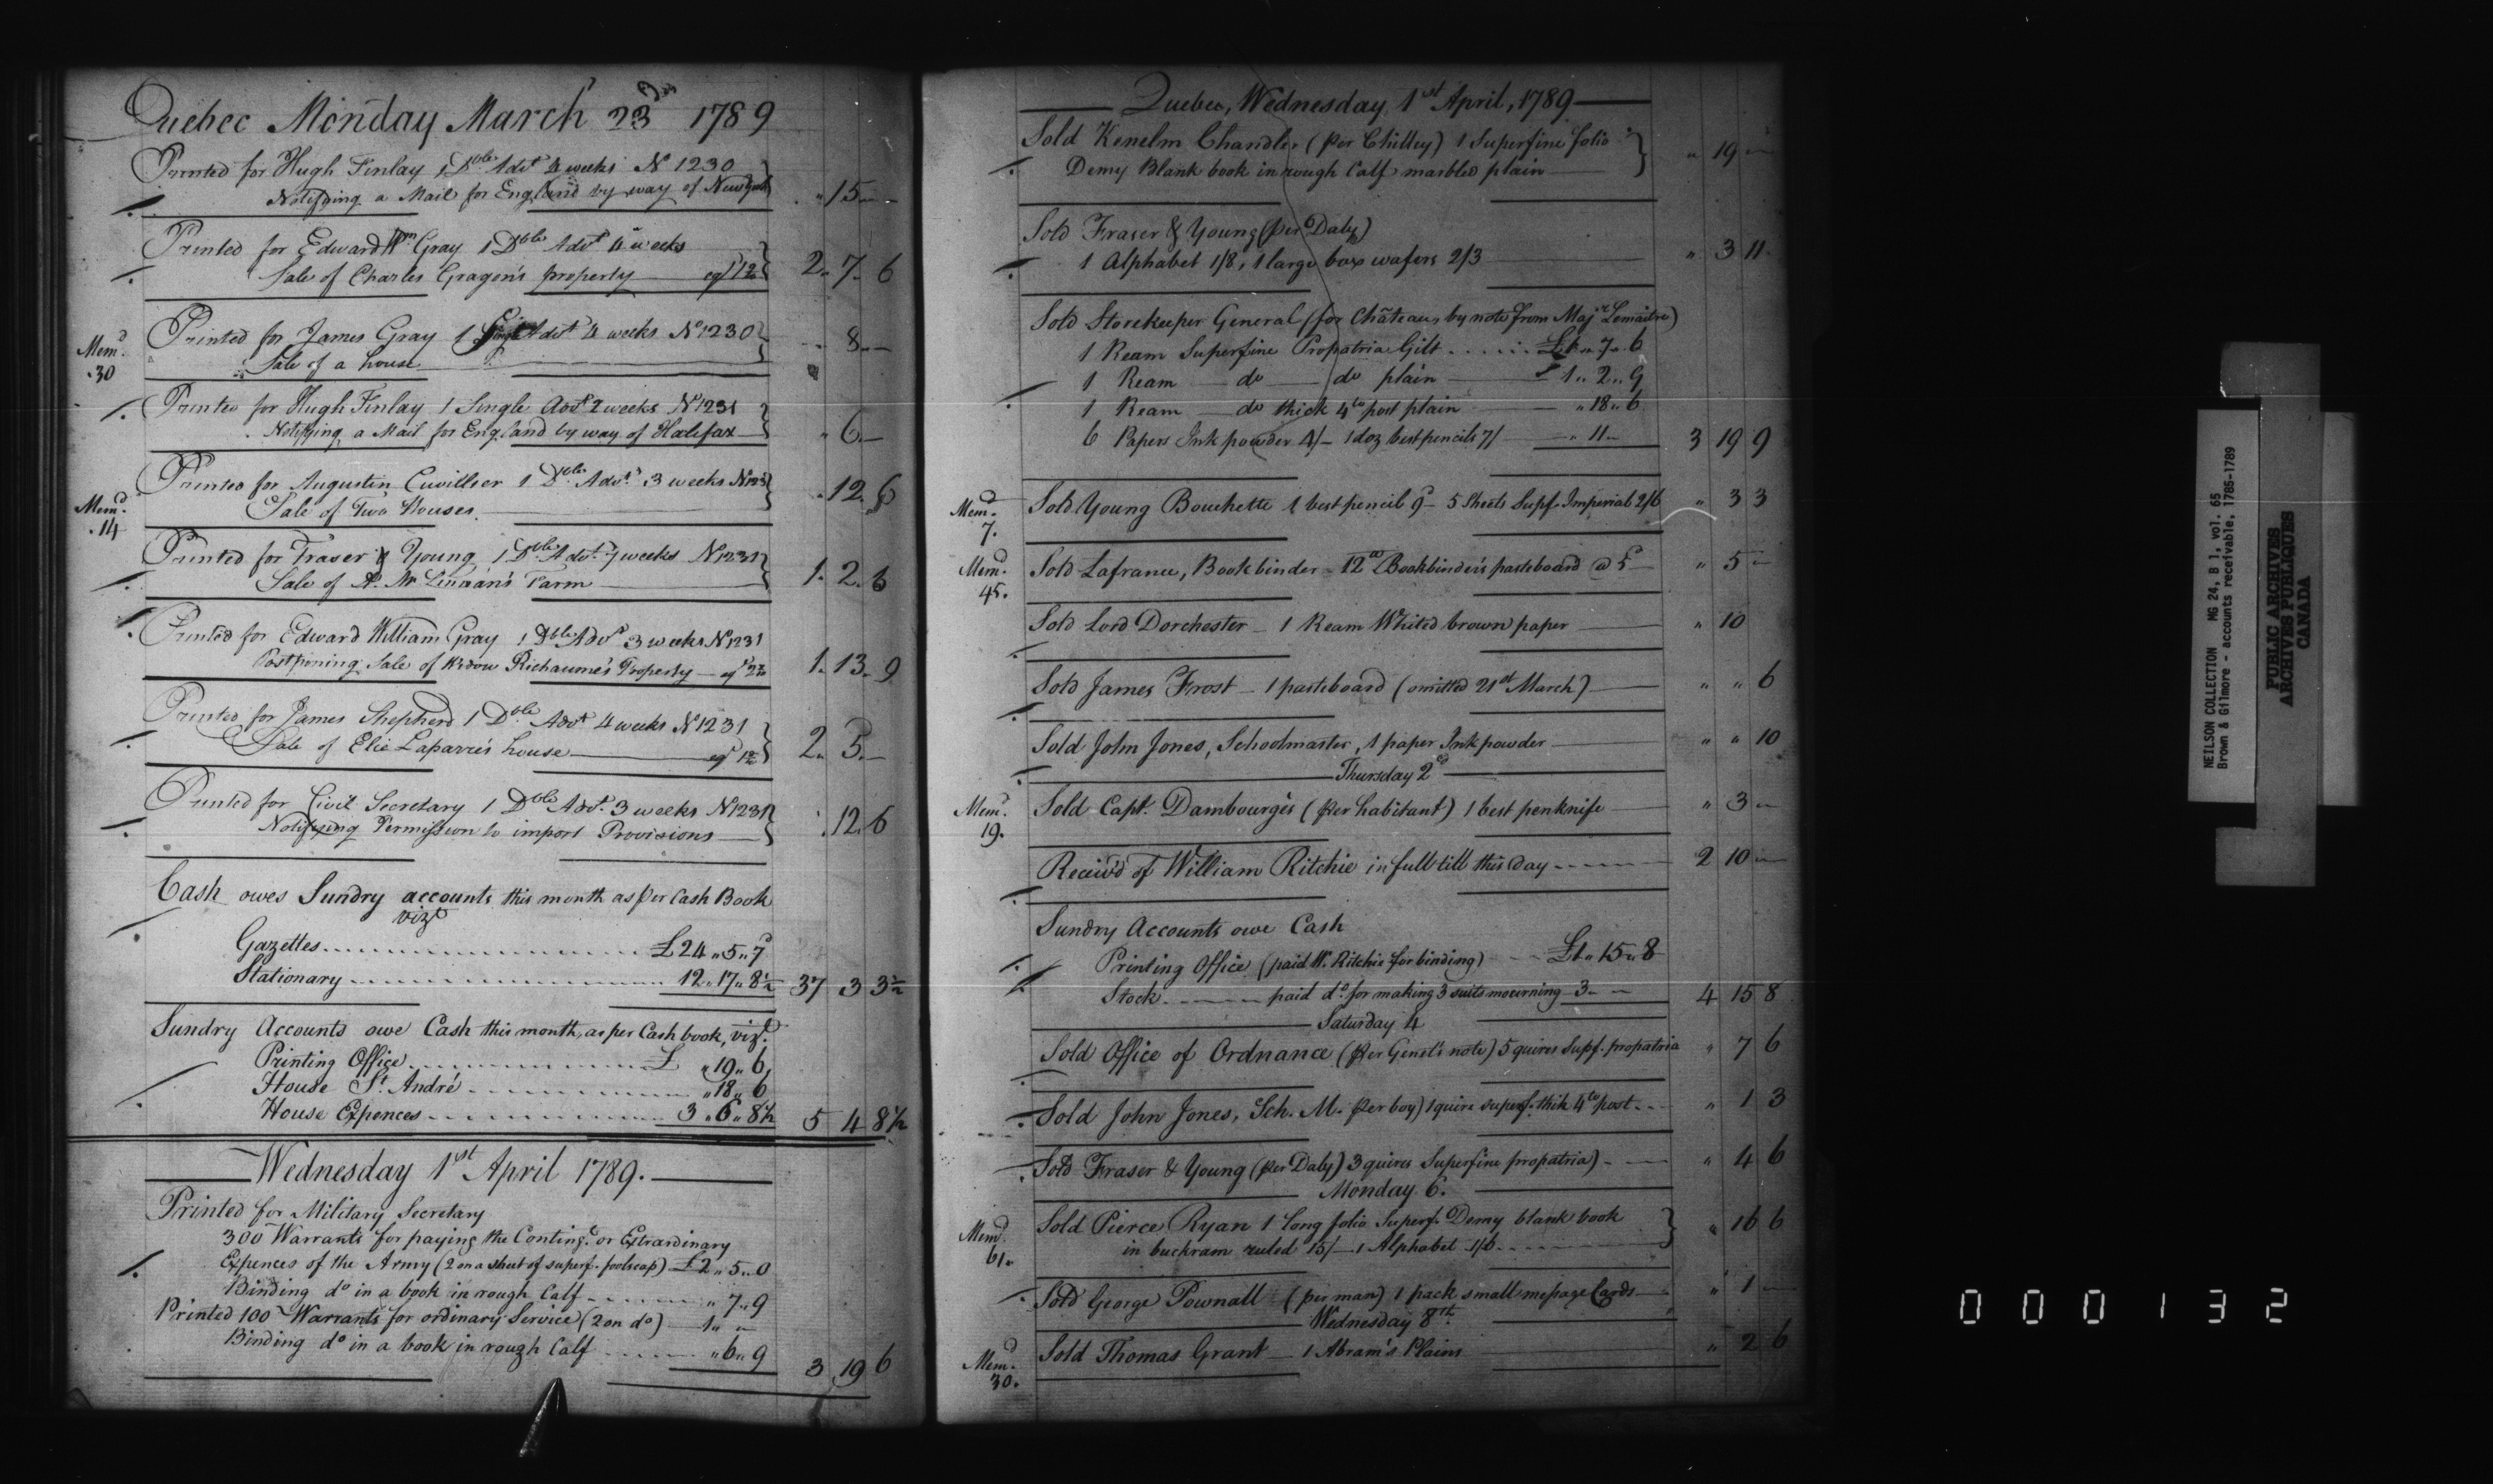 Quebec Monday March 23d 1789
Printed for Hugh Finlay 1 Dble Advt 4 weeks No 1230
Notifying a Mail for England by way of New York
" 15 —
Printed for Edward Wm Gray 1 Dble Advt 4 weeks
Sale of Charles Gragon's property
2. 7. 6
Mem.d 30
Printed for James Gray 1 Single Advt 4 weeks No 1230
Sale of a house
8 —
Printed for Hugh Finlay 1 Single Advt 2 weeks No 1231
Notifying a Mail for England by way of Halifax
" 6. —
Mem.d 14
Printed for Augustin Cuvillier 1 Dble Advt 3 weeks No 1231
Sale of Two Houses
. 12. 6
Printed for Fraser & Young 1 Dble Advt 7 weeks No 1231
Sale of A. Farm
1. 2. 6
Printed for Edward William Gray 1 Dble Advt 3 weeks No 1231
Postponing Sale of Widow Richaume's Property
1. 13. 9
Printed for James Shepherd 1 Dble Advt 4 weeks No 1231
Sale of Elie Laparre's house
2. 5. —
Printed for Civil Secretary 1 Dble Advt 3 weeks No 1231
Notifying Permission to import Provisions
. 12. 6
Cash owes Sundry accounts this month as per Cash Book
vizt
Gazettes £24 " 5 " 7
Stationary 12 " 17 " 8½ 37 3 3½
Sundry Accounts owe Cash this month, as per Cash book, vizt
Printing Office £ " 19 " 6
House St. André " 18 " 6
House Expences 3 " 6 " 8½ 5 4 8½
Wednesday 1st April 1789.
Printed for Military Secretary
300 Warrants for paying the Conting.t or Extrardinary
Expences of the Army (2 on a sheet of superf. foolscap) £2 " 5 " 0
Binding do in a book in rough Calf " 7 " 9
Printed 100 Warrants for ordinary Service (2 on do) 1 " " —
Binding do in a book in rough Calf " 6 " 9
3 19 6
Quebec, Wednesday 1st April, 1789
Sold Kenelm Chandler (per Chilley) 1 Superfine folio
Demy Blank book in rough Calf marbled plain
" 19 —
Sold Fraser & Young (per Daly)
1 Alphabet 1/8, 1 large box wafers 2/3 " 3 11
Sold Storekeeper General (for Château, by note from Majr Lemaitre)
1 Ream Superfine Propatria Gilt £1 " 7 " 6
1 Ream do do plain 1 " 2 " 9
1 Ream do thick 4to post plain " 18 " 6
6 Papers Ink powder 4/- 1 doz best pencils 7/ " 11 — 3 19 9
Mem.d 7.
Sold Young Bouchette 1 best pencil 9d - 5 Sheets Supf. Imperial 2/6 " 3 3
Mem.d 45.
Sold Lafrance, Bookbinder - 12 Bookbinder's pasteboard @ 5d " 5 —
Sold Lord Dorchester - 1 Ream Whited brown paper " 10
Sold James Frost - 1 pasteboard (omitted 21st March) " " 6
Sold John Jones, Schoolmaster, 1 paper Ink powder " " 10
Thursday 2d
Mem.d 19.
Sold Capt. Dambourgès (per habitant) 1 best penknife " 3 —
Receiv'd of William Ritchie in full till this day 2 10 —
Sundry Accounts owe Cash
Printing Office (paid W. Ritchie for binding) £1 " 15 " 8
Stock paid do for making 3 suits mourning 3 - - 4 15 8
Saturday 4
Sold Office of Ordnance (per Genel's note) 5 quires Supf. propatria " 7 6
Sold John Jones, Sch. M. per boy) 1 quire superf. thik 4to post " 1 3
Sold Fraser & Young (per Daly) 3 quires Superfine propatria) " 4 6
Monday 6.
Mem.d 61.
Sold Pierce Ryan 1 long folio Superf. Demy blank book
in buckram ruled 15/- 1 Alphabet 1/6 " 16 6
Sold George Pownall (per man) 1 pack small message Cards " 1 —
Wednesday 8th.
Mem.d 30.
Sold Thomas Grant - 1 Abram's Plains " 2 6
NEILSON COLLECTION MG 24, B 1, vol. 65
Brown & Gilmore - accounts receivable, 1785-1789
PUBLIC ARCHIVES
ARCHIVES PUBLIQUES
CANADA
000132